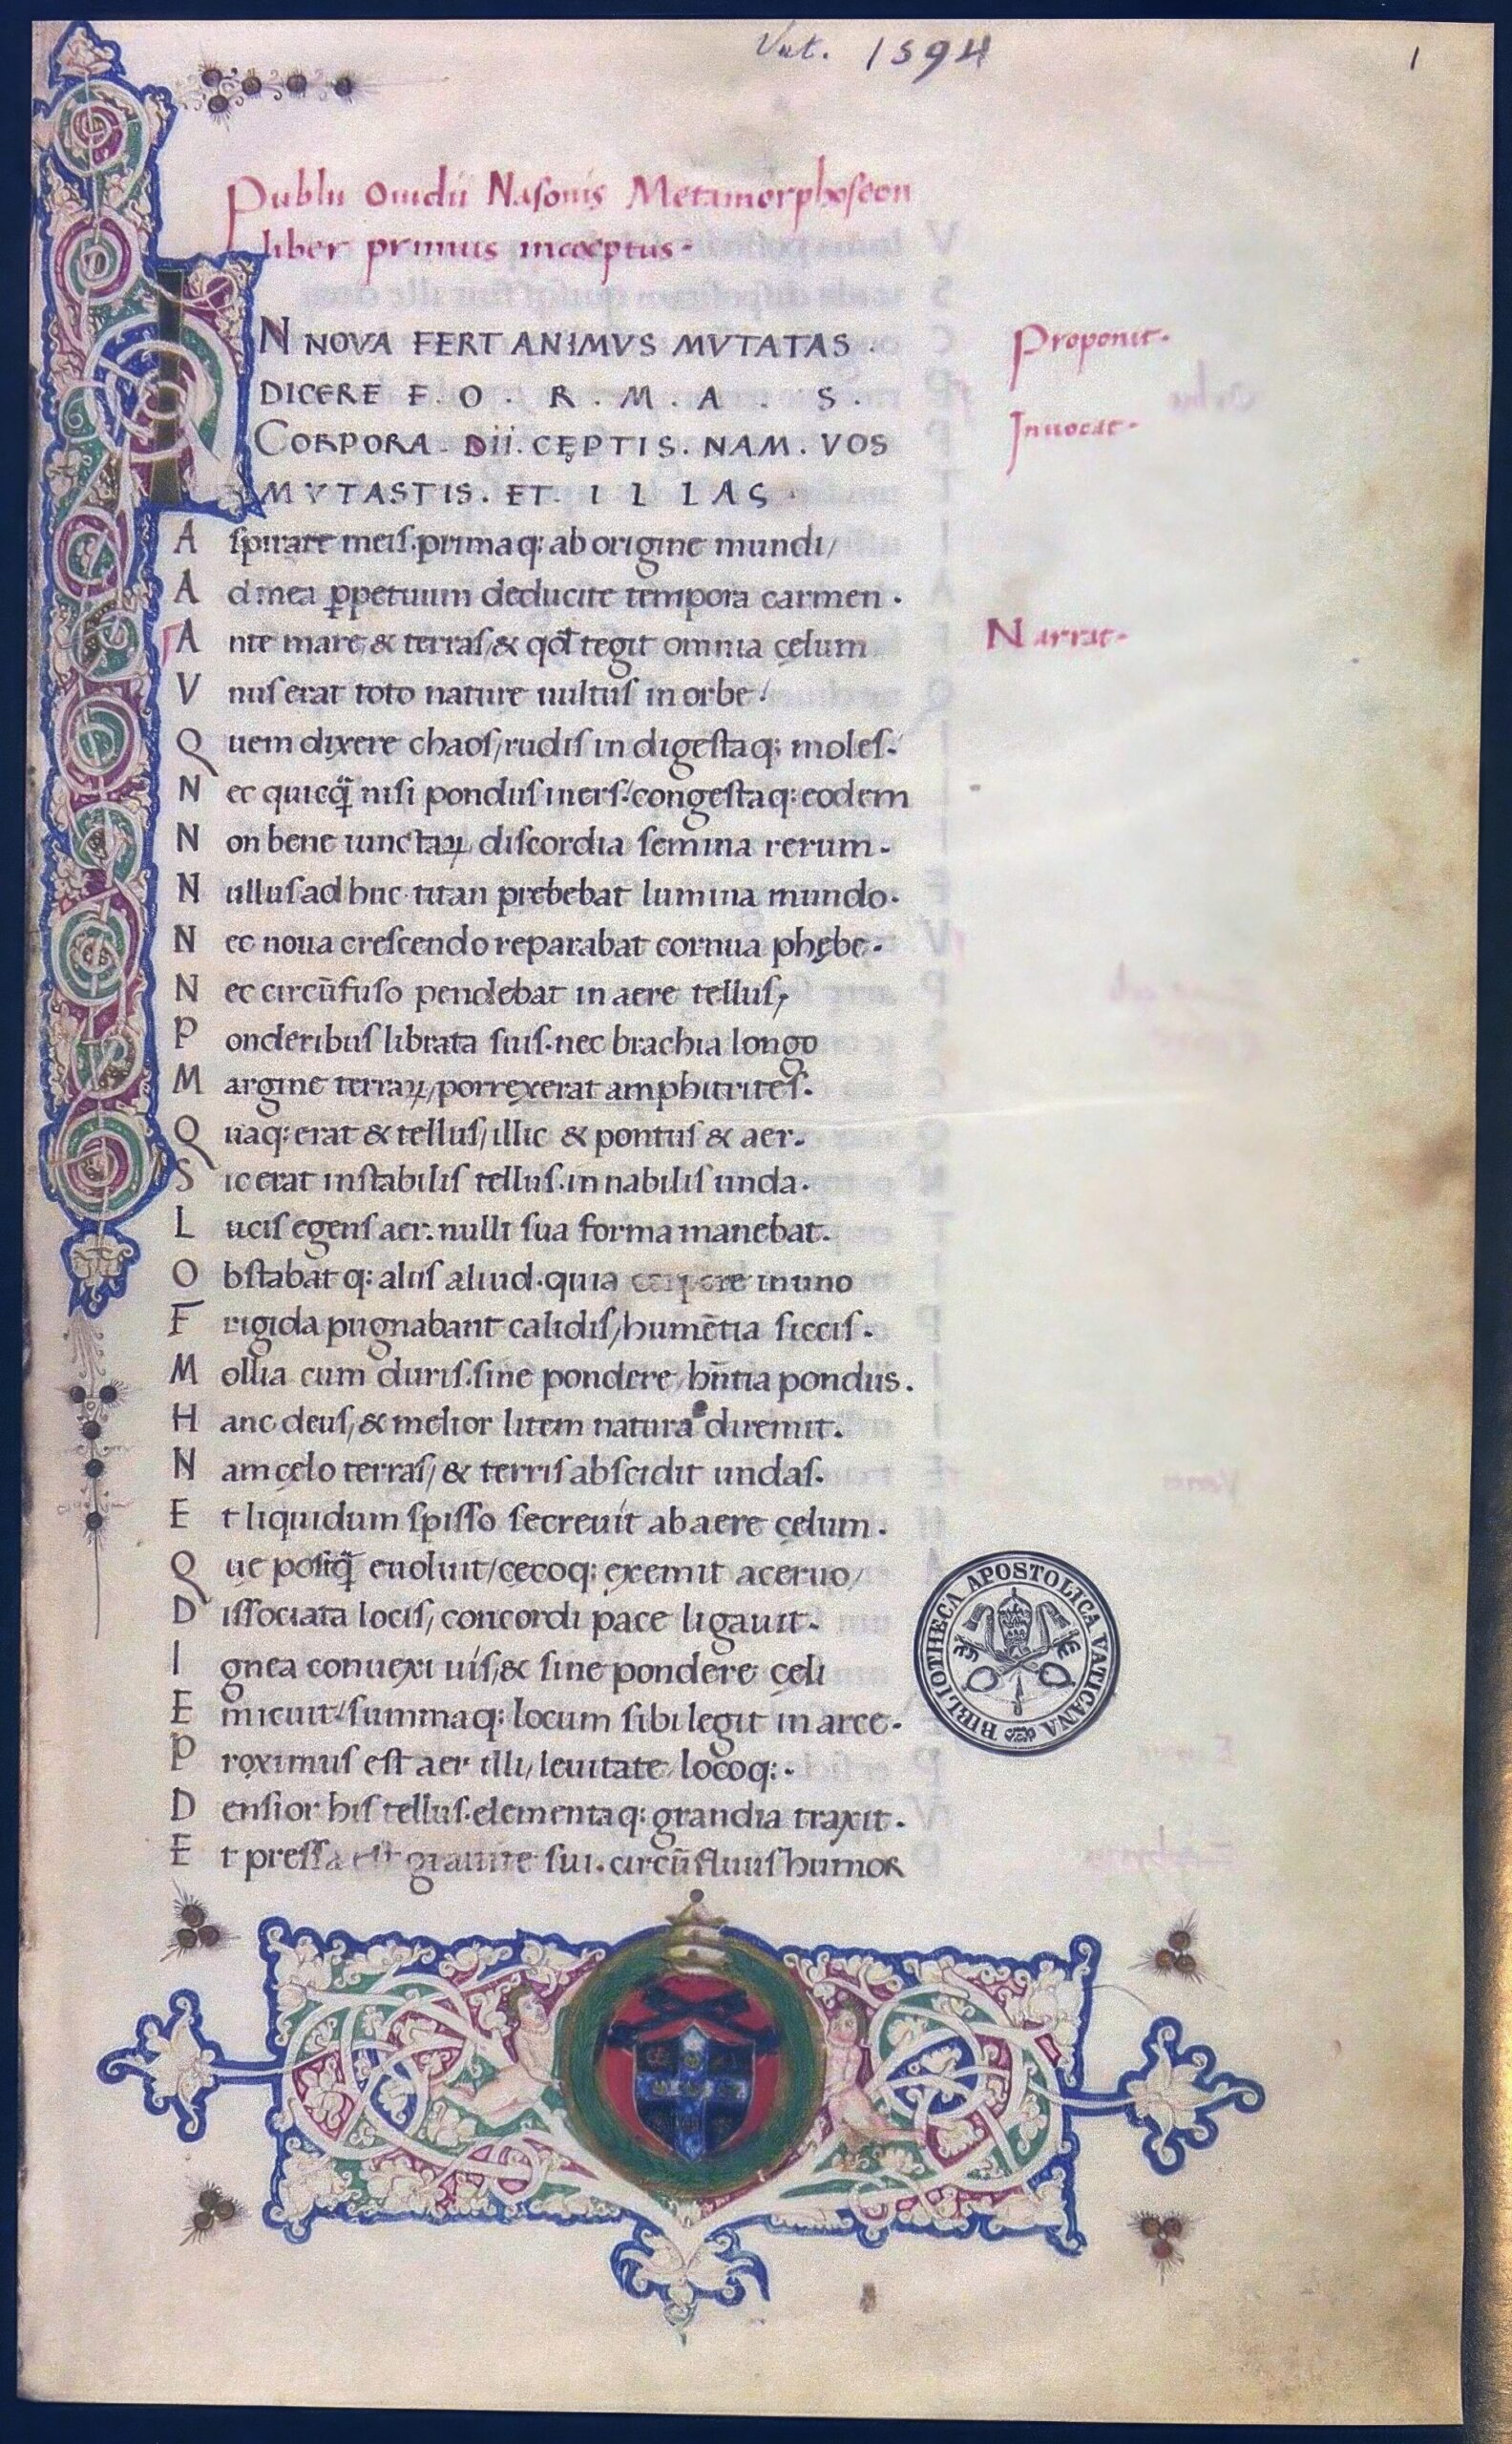 Vat. 1594
1
Publii Ouidii Nasonis Metamorphoseon
liber primus incoeptus.
IN NOVA FERT ANIMVS MVTATAS .
DICERE F. O . R . M . A . S .
CORPORA. DII. CĘPTIS. NAM. VOS
MVTASTIS. ET. I L LAS.
Proponit.
Inuocat.
A spirare meis. primaq: ab origine mundi/
A d mea ꝑpetuum deducite tempora carmen .
A nte mare, & terras/ & qd̄ tegit omnia cęlum
Narrat.
V nus erat toto nature uultus in orbe/
Q uem dixere chaos/ rudis in digestaq; moles.
N ec quicq̄ nisi pondus iners./ congestaq: eodem
N on bene iunctaꝝ discordia semina rerum.
N ullus ad huc titan prebebat lumina mundo.
N ec noua crescendo reparabat cornua phębe.
N ec circūfuso pendebat in aere tellus,
P onderibus librata suis. nec brachia longo
M argine terraꝝ/ porrexerat amphitrites.
Q uaq: erat & tellus/ illic & pontus & aer.
S ic erat instabilis tellus. in nabilis unda.
L ucis egens aer. nulli sua forma manebat.
O bstabat q: aliis aliud. quia corpore in uno
F rigida pugnabant calidis/ humētia siccis.
M ollia cum duris. sine pondere hn̄tia pondus.
H anc deus, & melior litem natura diremit.
N am cęlo terras/ & terris abscidit undas.
E t liquidum spisso secreuit ab aere cęlum.
Q ue postq̄ euoluit/ cęcoq: exemit aceruo/
D issociata locis/ concordi pace ligauit.
I gnea conuexi uis/ & sine pondere cęli
E micuit./ summaq: locum sibi legit in arce.
P roximus est aer illi/ leuitate locoq:.
D ensior his tellus. elementaq: grandia traxit.
E t pressa est grauite sui. circūfluus humor
BIBLIOTHECA APOSTOLICA VATICANA